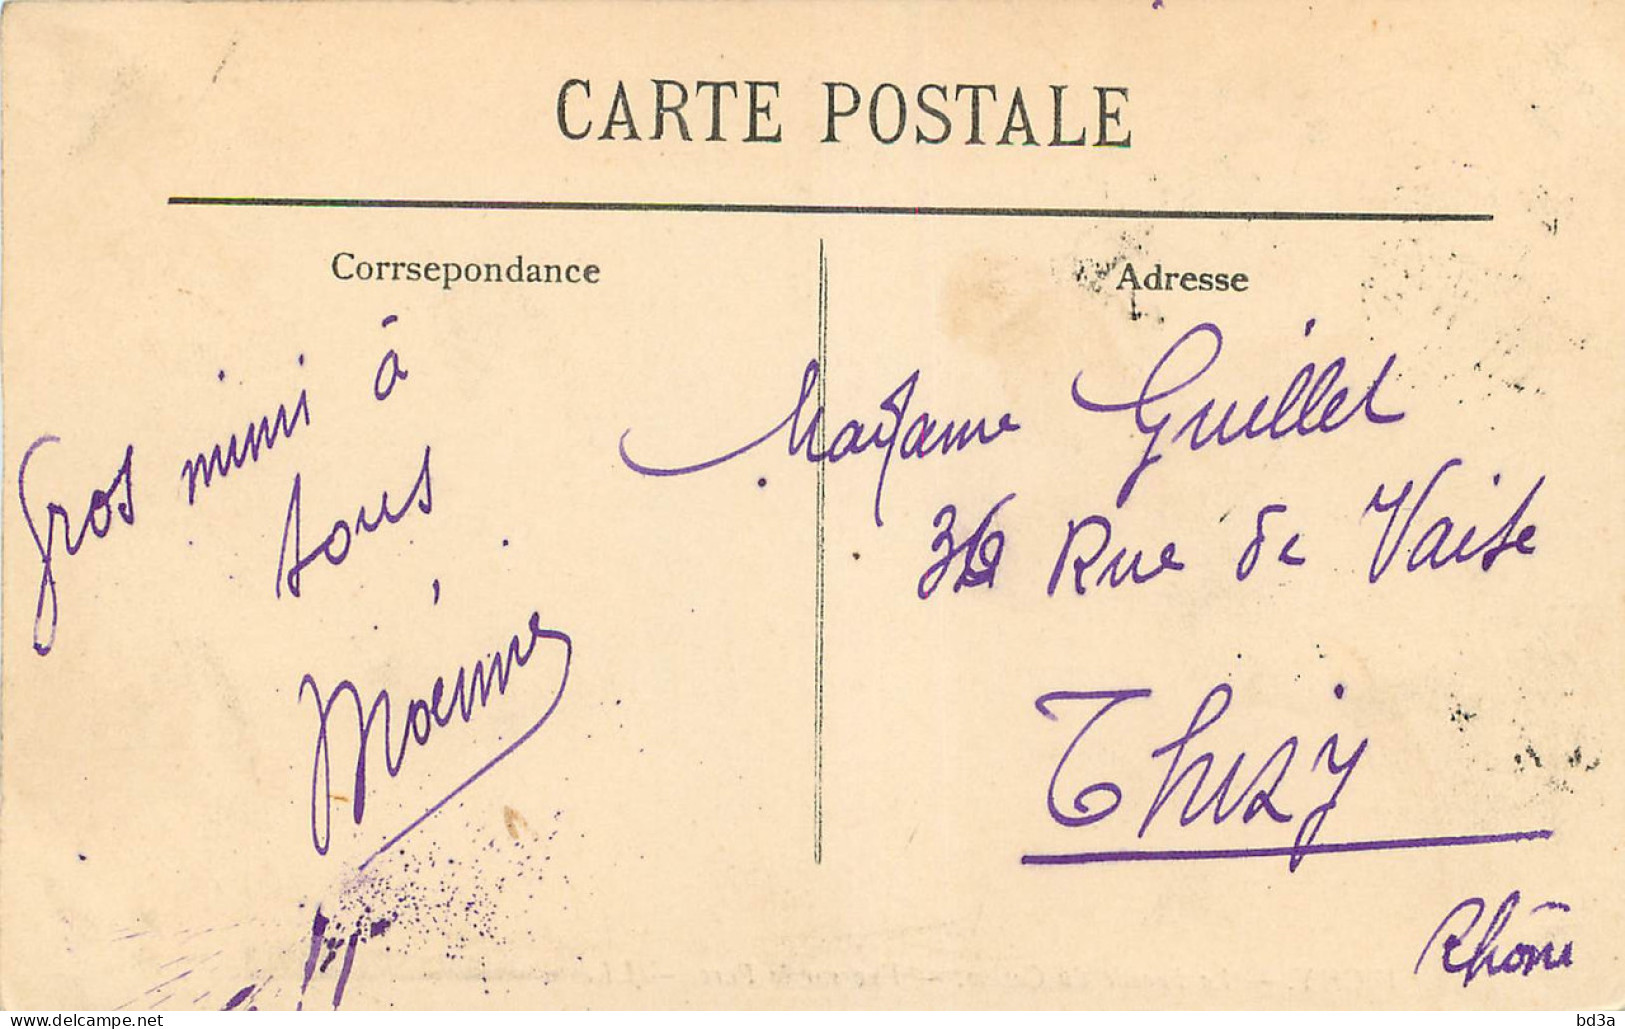 CARTE POSTALE
Corrsepondance
Gros mimi à
tous
Adresse
Madame Guillet
36 Rue de Vaise
Thizy
Rhône
delcampe.net
bd3a